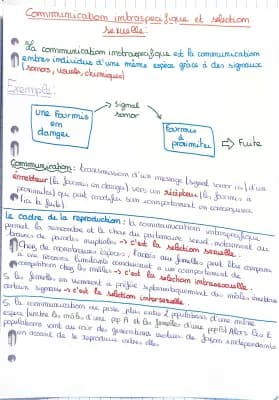 Communication intraspécifique et sélection
sexuelle :
La communication intraspécifique est la communication
entre individus d'une même espèce grâce à des signaux
(sonors, visuels, chimiques)
Exemple :
signal
sonor
une fourmis
en
danger
Fourmis
à
proximité
→ Fuite
Communication : transmission d'un message (signal sonor ici) d'un
émetteur (la fourmis en danger) vers un récepteur (les fourmis à
proximités) qui peut modifier son comportement en conséquence
(ici la fuite)
Le cadre de la reproduction : la communication intraspécifique
permet la rencontre et le choix du partenaire sexuel notamment au
travers de parades nuptiales → c'est la sélection sexuelle.
Chez de nombreuses espèces, l'accès aux femelles peut être comparé
à une ressource limitante conduisant à un comportement de
compétition chez les mâles → c'est la sélection intrasexuelle.
Si les femelles en viennent à préférer systématiquement des mâles
certains signaux → c'est la sélection intersexuelle.
Si la communication ne passe plus entre 2 populations d'une même
espèce (entre les mâles d'une pop A et les femelles d'une pop B) Alors les 2
populations vont au cours des générations évoluer de façon indépendante
en cessant de se reproduire entre elles